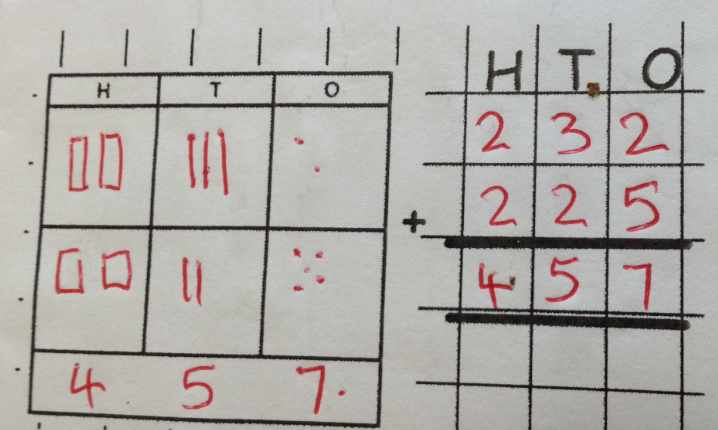 H T O
4 5 7.
H T O
2 3 2
+ 2 2 5
4 5 7